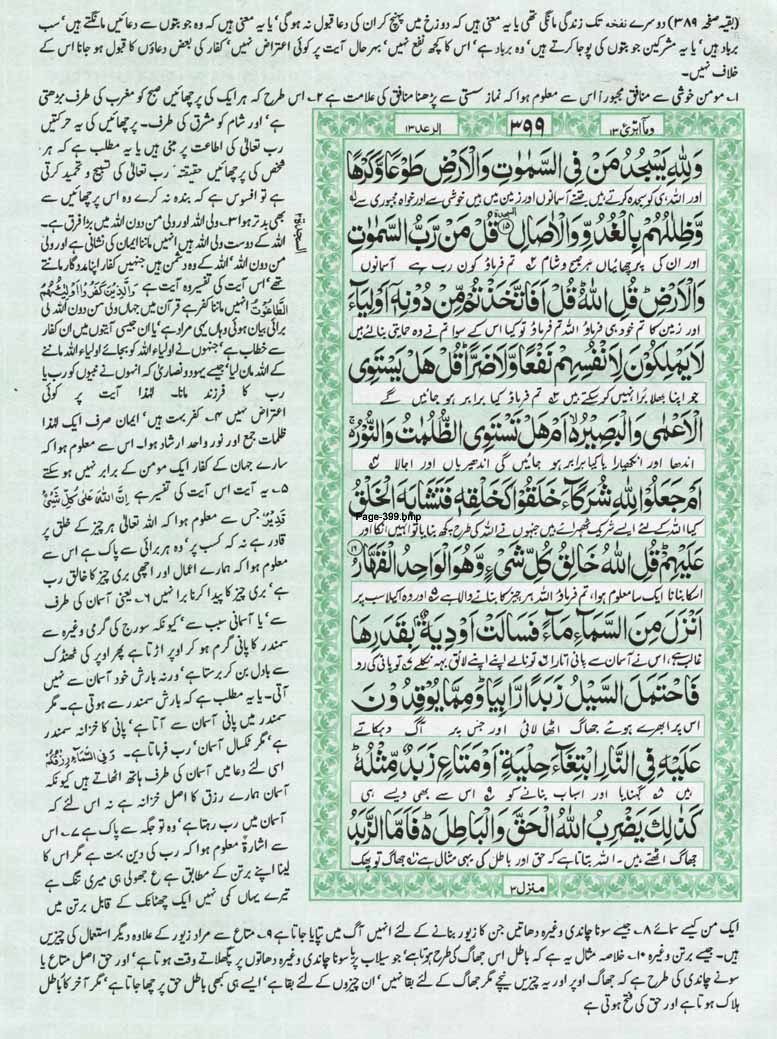 (بقیہ صفحہ ۳۸۹) دوسرے نفخہ تک زندگی مانگی تھی یا یہ معنی ہیں کہ دوزخ میں پہنچ کر ان کی دعا قبول نہ ہوگی' یا یہ معنی ہیں کہ وہ جو بتوں سے دعائیں مانگتے ہیں' سب
برباد ہیں' یا یہ مشرکین جو بتوں کی پوجا کرتے ہیں' وہ برباد ہے' اس کا کچھ نفع نہیں' بہرحال آیت پر کوئی اعتراض نہیں' کفار کی بعض دعاؤں کا قبول ہو جانا اس کے
خلاف نہیں۔
۱۔ مومن خوشی سے منافق مجبوراً اس سے معلوم ہوا کہ نماز سستی سے پڑھنا منافق کی علامت ہے ۲۔ اس طرح کہ ہر ایک کی پرچھائیں صبح کو مغرب کی طرف بڑھتی
ہے' اور شام کو مشرق کی طرف۔ پرچھائیں کی یہ حرکتیں
رب تعالٰی کی اطاعت پر مبنی ہیں یا یہ مطلب ہے کہ ہر
شخص کی پرچھائیں حقیقتہً رب تعالٰی کی تسبیح و تحمید کرتی
ہے تو افسوس ہے کہ بندہ نہ کرے وہ اس پرچھائیں سے
بھی بدتر ہوا ۳۔ ولی اللہ اور ولی من دون اللہ میں بڑا فرق ہے۔
اللہ کے دوست ولی اللہ ہیں انہیں ماننا ایمان کی نشانی ہے اور ولی
من دون اللہ' اللہ کے وہ دشمن ہیں جنہیں کفار اپنا مددگار مانتے
تھے' اس آیت کی تفسیر وہ آیت ہے وَالَّذِیْنَ کَفَرُوْا اَوْلِیٰٓـُٔهُمُ
الطَّاغُوْتُ انہیں ماننا کفر ہے قرآن میں جہاں ولی من دون اللہ کی
برائی بیان ہوئی وہاں یہی مراد ہے' یا ان جیسی آیتوں میں ان کفار
سے خطاب ہے' جنہوں نے اولیاء اللہ کو بجائے اولیاء اللہ ماننے
کے اللہ مان لیا' جیسے یہود و نصاریٰ کہ انہوں نے نبیوں کو رب یا
رب کا فرزند مانا۔ لہٰذا آیت پر کوئی
اعتراض نہیں ۴۔ کفر بہت ہیں' ایمان صرف ایک لہٰذا
ظلمات جمع اور نور واحد ارشاد ہوا۔ اس سے معلوم ہوا کہ
سارے جہان کے کفار ایک مومن کے برابر نہیں ہو سکتے
۵۔ یہ آیت اس آیت کی تفسیر ہے اِنَّ اللّٰهَ عَلٰی کُلِّ شَیْءٍ
قَدِیْرٌ جس سے معلوم ہوا کہ اللہ تعالٰی ہر چیز کے خلق پر
قادر ہے نہ کہ کسب پر' وہ ہر برائی سے پاک ہے اس سے
معلوم ہوا کہ ہمارے اعمال اور اچھی بری چیز کا خالق رب
ہے' بری چیز کا پیدا کرنا برا نہیں ۶۔ یعنی آسمان کی طرف
سے' یا آسمانی سبب سے' کیونکہ سورج کی گرمی وغیرہ سے
سمندر کا پانی گرم ہو کر اوپر اڑتا ہے پھر اوپر کی ٹھنڈک
سے بادل بن کر برستا ہے' ورنہ بارش خود آسمان سے نہیں
آتی۔ یا یہ مطلب ہے کہ بارش سمندر سے ہوتی ہے۔ مگر
سمندر میں پانی آسمان سے آتا ہے' پانی کا خزانہ سمندر
ہے' مگر ٹکسال آسمان' رب فرماتا ہے۔ وَفِی السَّمَآءِ رِزْقُکُمْ
اسی لئے دعا میں آسمان کی طرف ہاتھ اٹھاتے ہیں کیونکہ
آسمان ہمارے رزق کا اصل خزانہ ہے نہ اس لئے کہ
آسمان میں رب رہتا ہے' وہ تو جگہ سے پاک ہے ۷۔ اس
سے اشارۃً معلوم ہوا کہ رب کی دین بہت ہے مگر اس کا
لینا اپنے برتن کے مطابق ہے ع جھولی ہی میری تنگ ہے
تیرے یہاں کمی نہیں ایک چھٹانک کے قابل برتن میں
السجدۃ ۲
ومآ ابرئ ۱۳
۳۹۹
الرعد ۱۳
وَلِلّٰهِ یَسْجُدُ مَنْ فِی السَّمٰوٰتِ وَالْاَرْضِ طَوْعًا وَّکَرْهًا
اور اللہ ہی کو سجدہ کرتے ہیں جتنے آسمانوں اور زمین میں ہیں خوشی سے اور خواہ مجبوری سے ۱
وَّظِلٰلُهُمْ بِالْغُدُوِّ وَالْاٰصَالِ ۝۱۵ قُلْ مَنْ رَّبُّ السَّمٰوٰتِ
اور ان کی پرچھائیاں ہر صبح و شام ۲ تم فرماؤ کون رب ہے آسمانوں
وَالْاَرْضِ قُلِ اللّٰهُ قُلْ اَفَاتَّخَذْتُمْ مِّنْ دُوْنِهٖۤ اَوْلِیَآءَ
اور زمین کا تم خود ہی فرماؤ اللہ تم فرماؤ تو کیا اس کے سوا تم نے وہ حمایتی بنالئے ہیں
لَا یَمْلِکُوْنَ لِاَنْفُسِهِمْ نَفْعًا وَّلَا ضَرًّا قُلْ هَلْ یَسْتَوِی
جو اپنا بھلا برا نہیں کرسکتے ہیں ۳ تم فرماؤ کیا برابر ہو جائیں گے
الْاَعْمٰی وَالْبَصِیْرُ اَمْ هَلْ تَسْتَوِی الظُّلُمٰتُ وَالنُّوْرُ
اندھا اور انکھیارا یا کیا برابر ہو جائیں گی اندھیریاں اور اجالا ۴
اَمْ جَعَلُوْا لِلّٰهِ شُرَکَآءَ خَلَقُوْا کَخَلْقِهٖ فَتَشَابَهَ الْخَلْقُ
کیا اللہ کے لئے ایسے شریک ٹھہرائے ہیں جنہوں نے اللہ کی طرح کچھ بنایا تو انہیں انکا اور
Page-399.bmp
عَلَیْهِمْ قُلِ اللّٰهُ خَالِقُ کُلِّ شَیْءٍ وَّهُوَ الْوَاحِدُ الْقَهَّارُ ۝۱۶
اسکا بنانا ایک سا معلوم ہوا، تم فرماؤ اللہ ہر چیز کا بنانے والا ہے ۵ اور وہ اکیلا سب پر
اَنْزَلَ مِنَ السَّمَآءِ مَآءً فَسَالَتْ اَوْدِیَةٌۢ بِقَدَرِهَا
غالب ہے، اس نے آسمان سے پانی اتارا ۶ تو نالے اپنے اپنے لائق بہہ نکلے ۷ تو پانی کی رو
فَاحْتَمَلَ السَّیْلُ زَبَدًا رَّابِیًا وَمِمَّا یُوْقِدُوْنَ
اس پر ابھرے ہوئے جھاگ اٹھا لائی اور جس پر آگ دہکاتے
عَلَیْهِ فِی النَّارِ ابْتِغَآءَ حِلْیَةٍ اَوْ مَتَاعٍ زَبَدٌ مِّثْلُهٗ
ہیں ۸ گہنایا اور اسباب بنانے کو ۹ اس سے بھی ویسے ہی
کَذٰلِکَ یَضْرِبُ اللّٰهُ الْحَقَّ وَالْبَاطِلَ فَاَمَّا الزَّبَدُ
جھاگ اٹھتے ہیں۔ اللہ بتاتا ہے کہ حق اور باطل کی یہی مثال ہے ۱۰ جھاگ تو پھک
منزل ۳
ایک من کیسے سمائے ۸۔ جیسے سونا چاندی وغیرہ دھاتیں جن کا زیور بنانے کے لئے انہیں آگ میں تپایا جاتا ہے ۹۔ متاع سے مراد زیور کے علاوہ دیگر استعمال کی چیزیں
ہیں۔ جیسے برتن وغیرہ ۱۰۔ خلاصہ مثال یہ ہے کہ باطل اس جھاگ کی طرح ہوتا ہے' جو سیلاب پر یا سونا چاندی وغیرہ دھاتوں پر پگھلاتے وقت ہوتا ہے' اور حق اصل متاع یا
سونے چاندی کی طرح ہے کہ جھاگ اوپر اور یہ چیزیں نیچے مگر جھاگ کے لئے بقا نہیں' ان چیزوں کے لئے بقا ہے' ایسے ہی کبھی باطل حق پر چھا جاتا ہے' مگر آخر کار باطل
ہلاک ہوتا ہے اور حق کی فتح ہوتی ہے